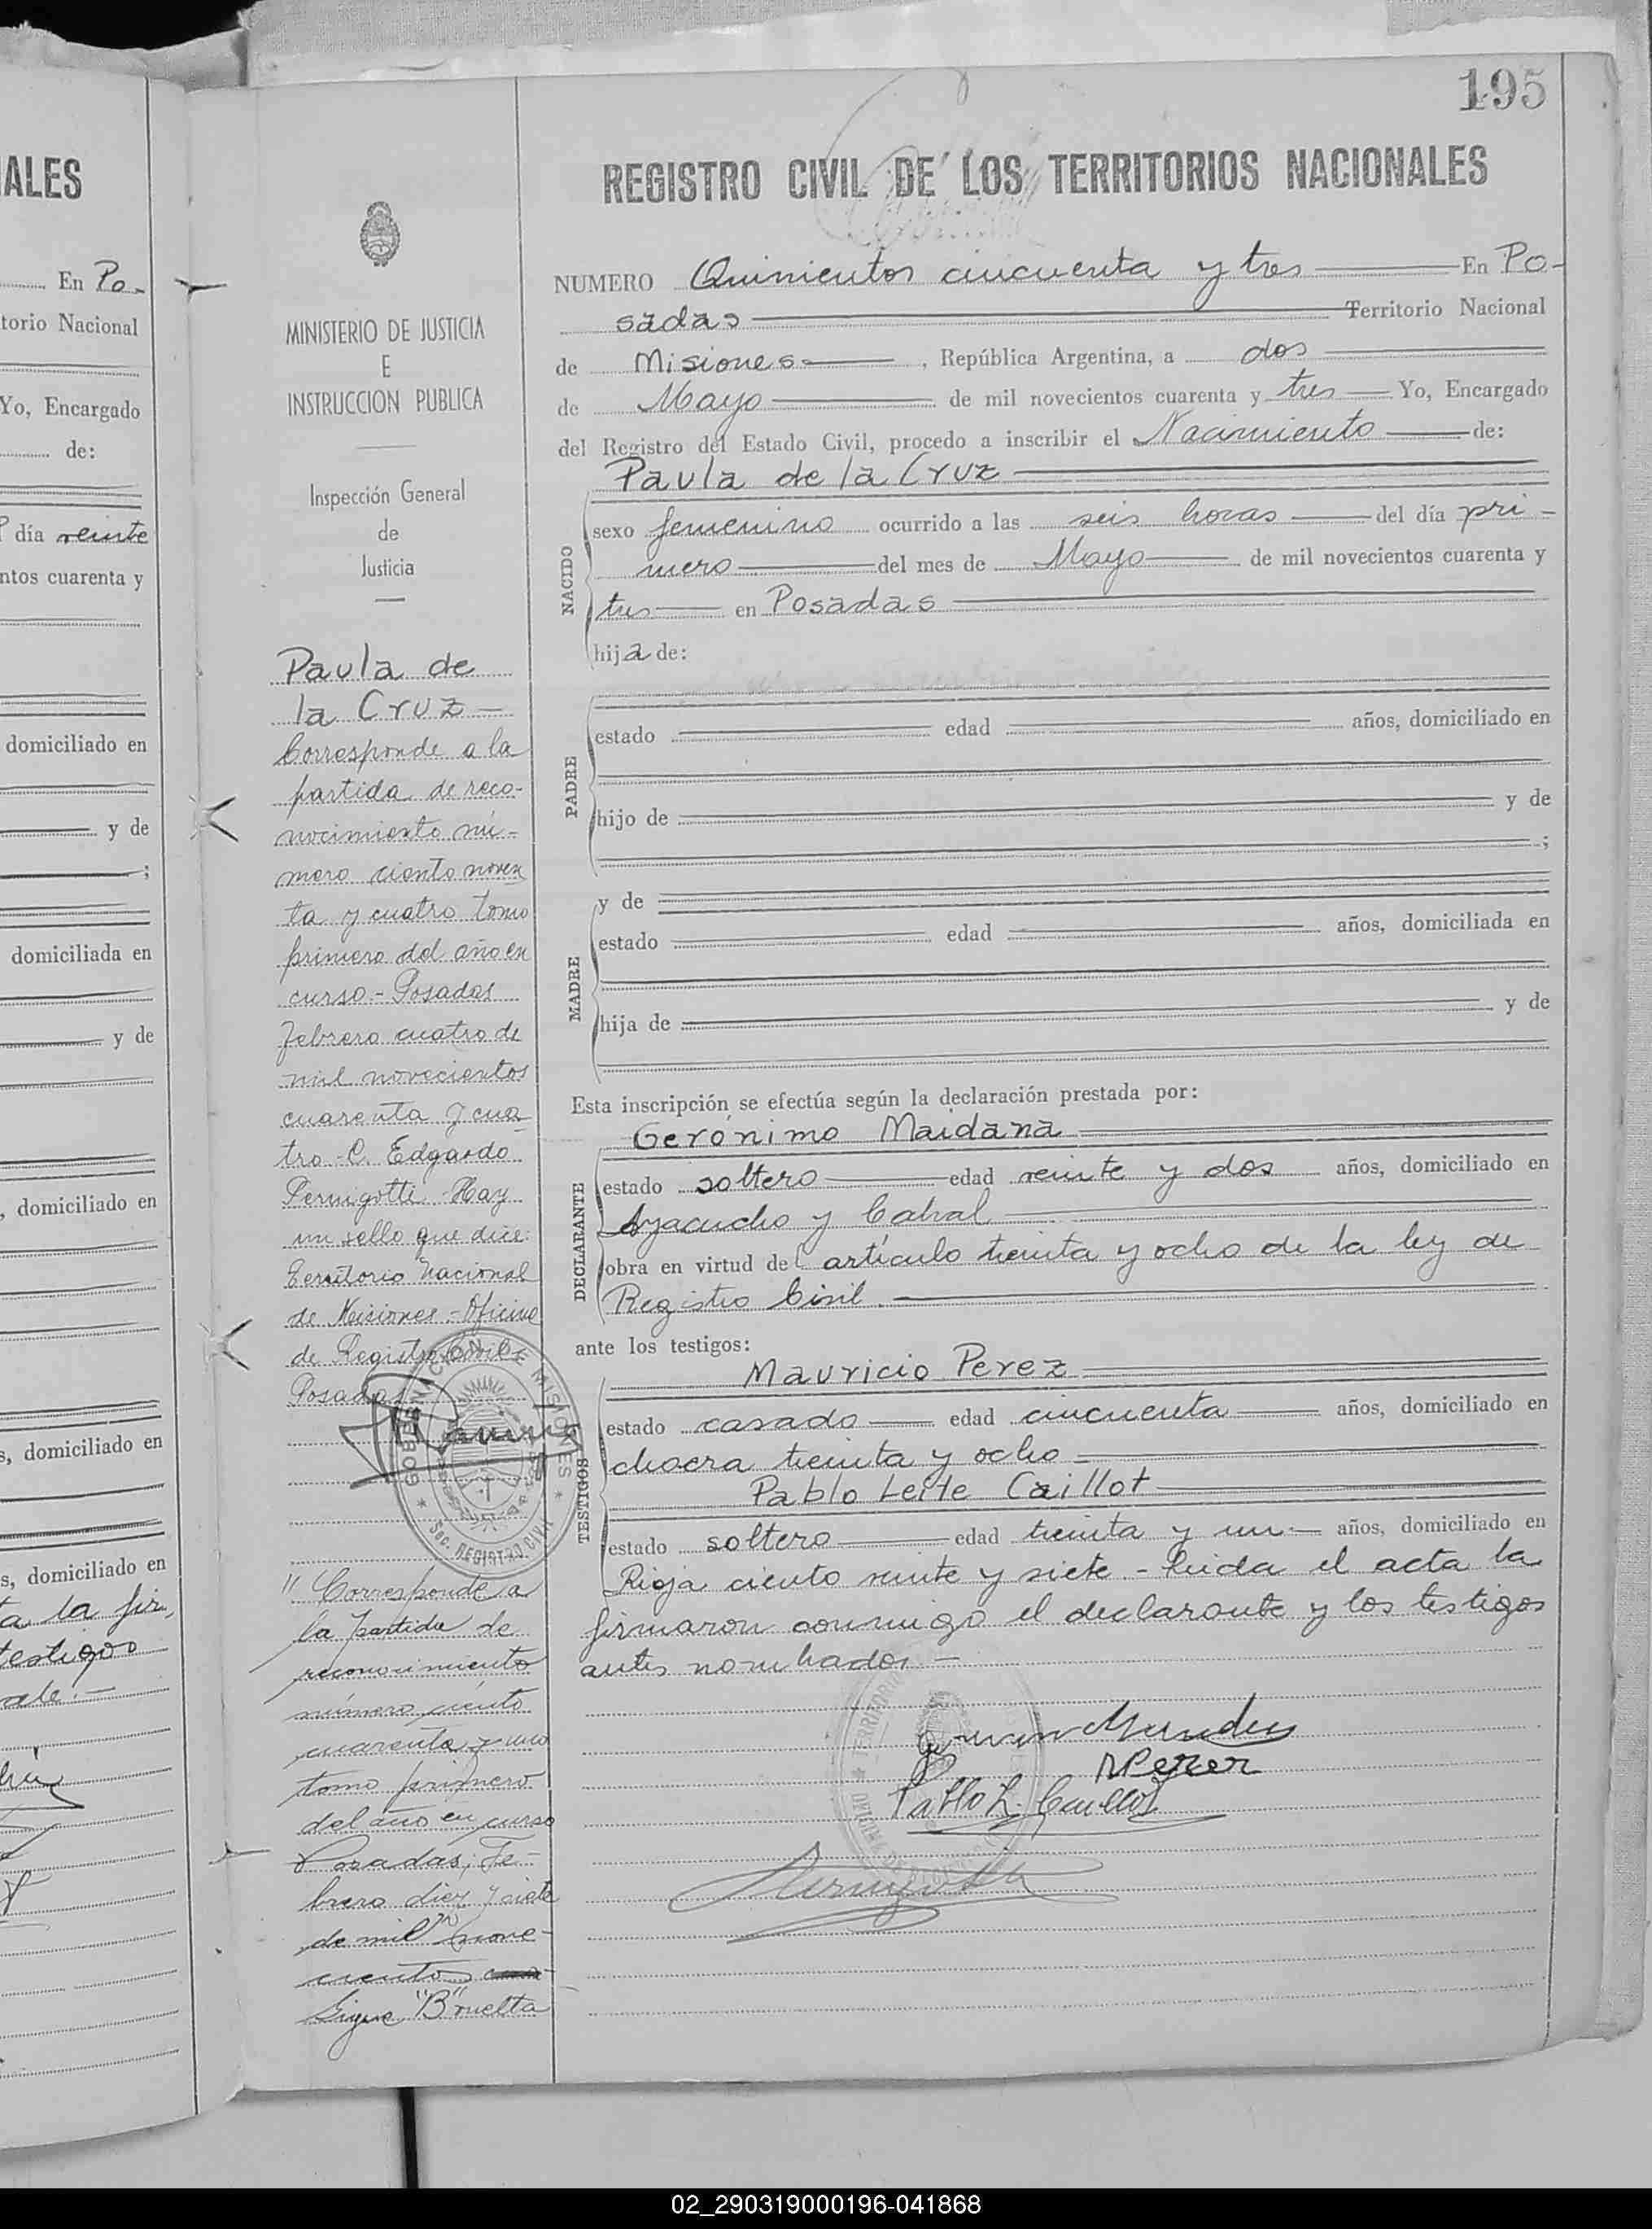 ALES
En Po-
torio Nacional
Yo, Encargado
de:
día veinte
ntos cuarenta y
domiciliado en
y de
;
domiciliada en
y de
, domiciliado en
s, domiciliado en
s, domiciliado en
a la fir,
testigos
ale.-
MINISTERIO DE JUSTICIA
E
INSTRUCCION PUBLICA
Inspección General
de
Justicia
Paula de
la Cruz -
Corresponde a la
partida de reco-
nocimiento nú-
mero ciento noven
ta y cuatro tomo
primero del año en
curso - Posadas
Febrero cuatro de
mil novecientos
cuarenta y cua
tro - C. Edgardo
Pernigotti - Hay
un sello que dice:
Territorio Nacional
de Misiones - Oficina
de Registro Civil -
Posadas
GOBERNACION MISIONES
SEC. REGISTRO CIVIL
" Corresponde a
la partida de
reconocimiento
número ciento
cuarenta y uno
tomo primero
del año en curso
Posadas, Fe-
brero diez y siete
de mil nove-
cientos
Sigue "B" vuelta
195
REGISTRO CIVIL DE LOS TERRITORIOS NACIONALES
NUMERO Quinientos cincuenta y tres En Po-
sadas Territorio Nacional
de Misiones , República Argentina, a dos
de Mayo de mil novecientos cuarenta y tres Yo, Encargado
del Registro del Estado Civil, procedo a inscribir el Nacimiento de:
Paula de la Cruz
NACIDO
sexo femenino ocurrido a las seis horas del día pri-
mero del mes de Mayo de mil novecientos cuarenta y
tres en Posadas
hija de:
PADRE
estado edad años, domiciliado en
hijo de y de
;
MADRE
y de
estado edad años, domiciliada en
hija de y de
Esta inscripción se efectúa según la declaración prestada por:
Gerónimo Maidana
DECLARANTE
estado soltero edad veinte y dos años, domiciliado en
Ayacucho y Cabral
obra en virtud del artículo treinta y ocho de la ley de
Registro Civil.
ante los testigos:
Mauricio Perez
TESTIGOS
estado casado edad cincuenta años, domiciliado en
chacra treinta y ocho
Pablo Leite Caillot
estado soltero edad treinta y un años, domiciliado en
Rioja ciento veinte y siete.- Leida el acta la
firmaron conmigo el declarante y los testigos
antes nombrados.-
MPerez
Pablo L. Caillot
02_290319000196-041868